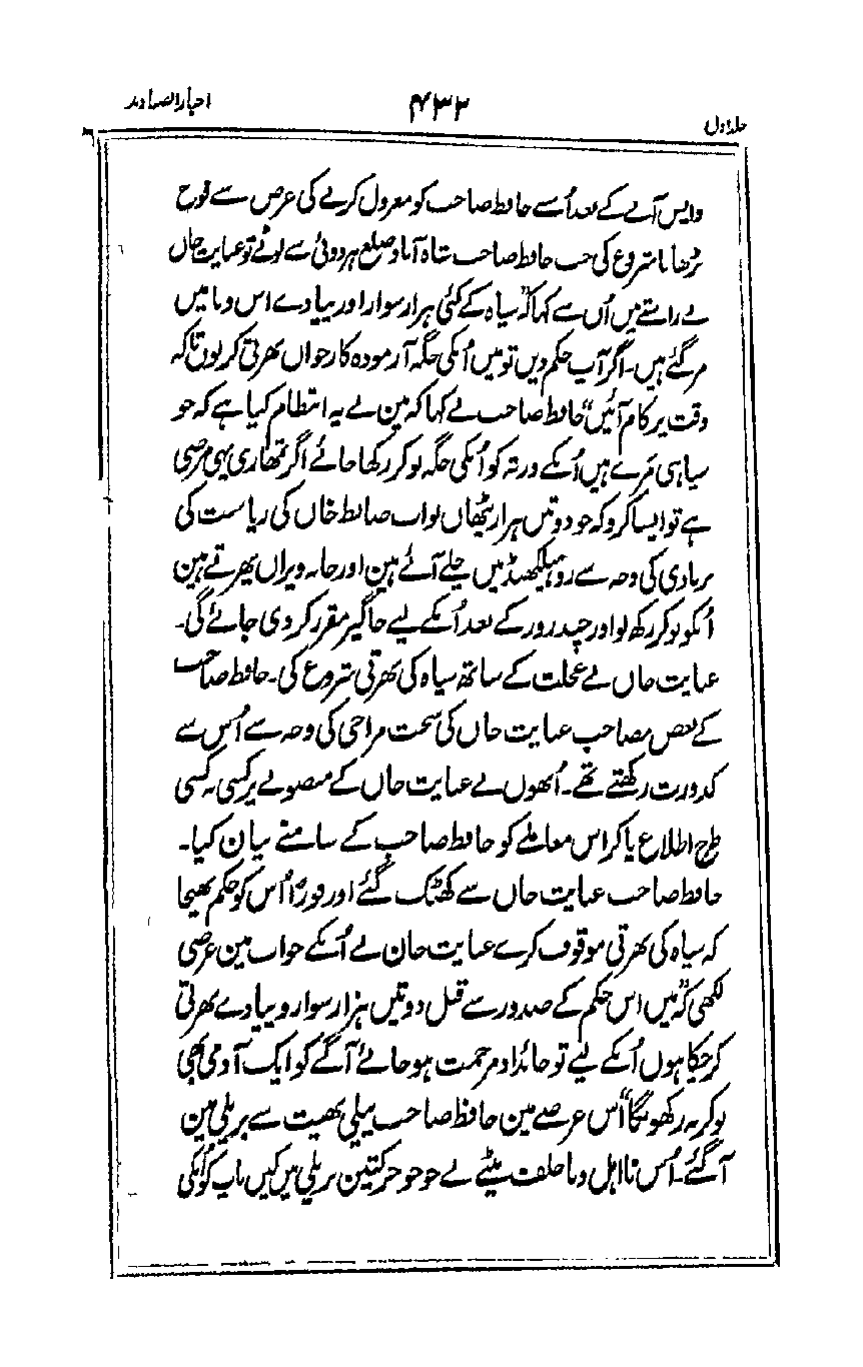 جلد اول
۴۳۲
اخبار الصنادید
واپس آنے کے بعد اُسے حافظ صاحب کو معزول کرنے کی غرض سے فوج
بڑھانا شروع کی جب حافظ صاحب شاہ آباد ضلع ہردوئی سے لوٹے تو عنایت خاں
نے راستے میں اُن سے کہا کہ "سپاہ کے کئی ہزار سوار اور پیادے اس وبا میں
مر گئے ہیں۔ اگر آپ حکم دیں تو میں اُنکی جگہ آزمودہ کار جوان بھرتی کر لوں تاکہ
وقت پر کام آئیں" حافظ صاحب نے کہا کہ مین نے یہ انتظام کیا ہے کہ جو
سپاہی مرے ہیں اُنکے ورثہ کو اُنکی جگہ نوکر رکھا جائے اگر تمھاری یہی مرضی
ہے تو ایسا کرو کہ جو دو تین ہزار پٹھان نواب ضابط خاں کی ریاست کی
بربادی کی وجہ سے روہیلکھنڈ میں چلے آئے ہین اور خانہ ویراں پھرتے ہین
اُنکو نوکر رکھ لو اور چند روز کے بعد اُنکے لیے جاگیر مقرر کر دی جائے گی۔
عنایت خاں نے عجلت کے ساتھ سپاہ کی بھرتی شروع کی۔ حافظ صاحب
کے بعض مصاحب عنایت خاں کی سخت مزاجی کی وجہ سے اُس سے
کدورت رکھتے تھے۔ اُنھوں نے عنایت خاں کے منصوبے پر کسی نہ کسی
طرح اطلاع پاکر اس معاملے کو حافظ صاحب کے سامنے بیان کیا۔
حافظ صاحب عنایت خاں سے کھٹک گئے اور فوراً اُس کو حکم بھیجا
کہ سپاہ کی بھرتی موقوف کرے عنایت خان نے اُسکے جواب مین عرضی
لکھی کہ "میں اس حکم کے صدور سے قبل دو تین ہزار سوار و پیادے بھرتی
کر چکا ہوں اُنکے لیے تو جائداد مرحمت ہو جائے آگے کو ایک آدمی بھی
نوکر نہ رکھونگا" اُس عرصے مین حافظ صاحب پیلی بھیت سے بریلی مین
آگئے۔ اُس نااہل و ناخلف بیٹے نے جو جو حرکتین بریلی میں کیں باپ کو اُنکی